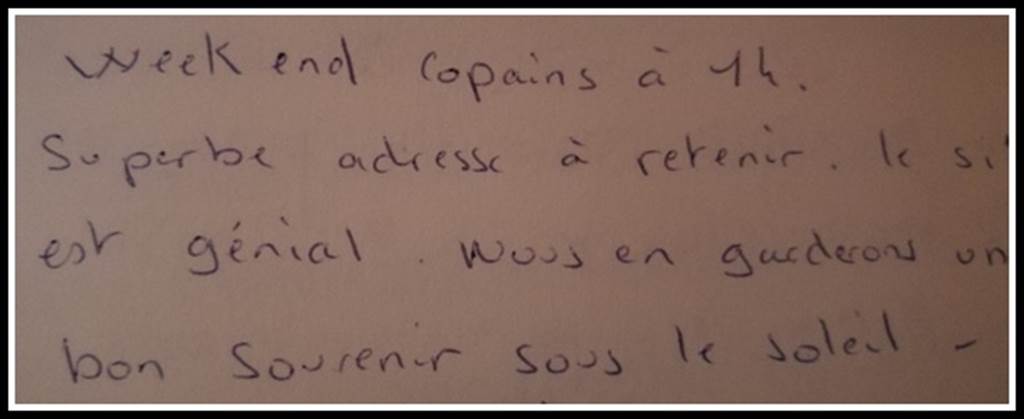 Week end copains à 14.
Superbe adresse à retenir. le si
est génial. Nous en garderons un
bon souvenir sous le soleil -